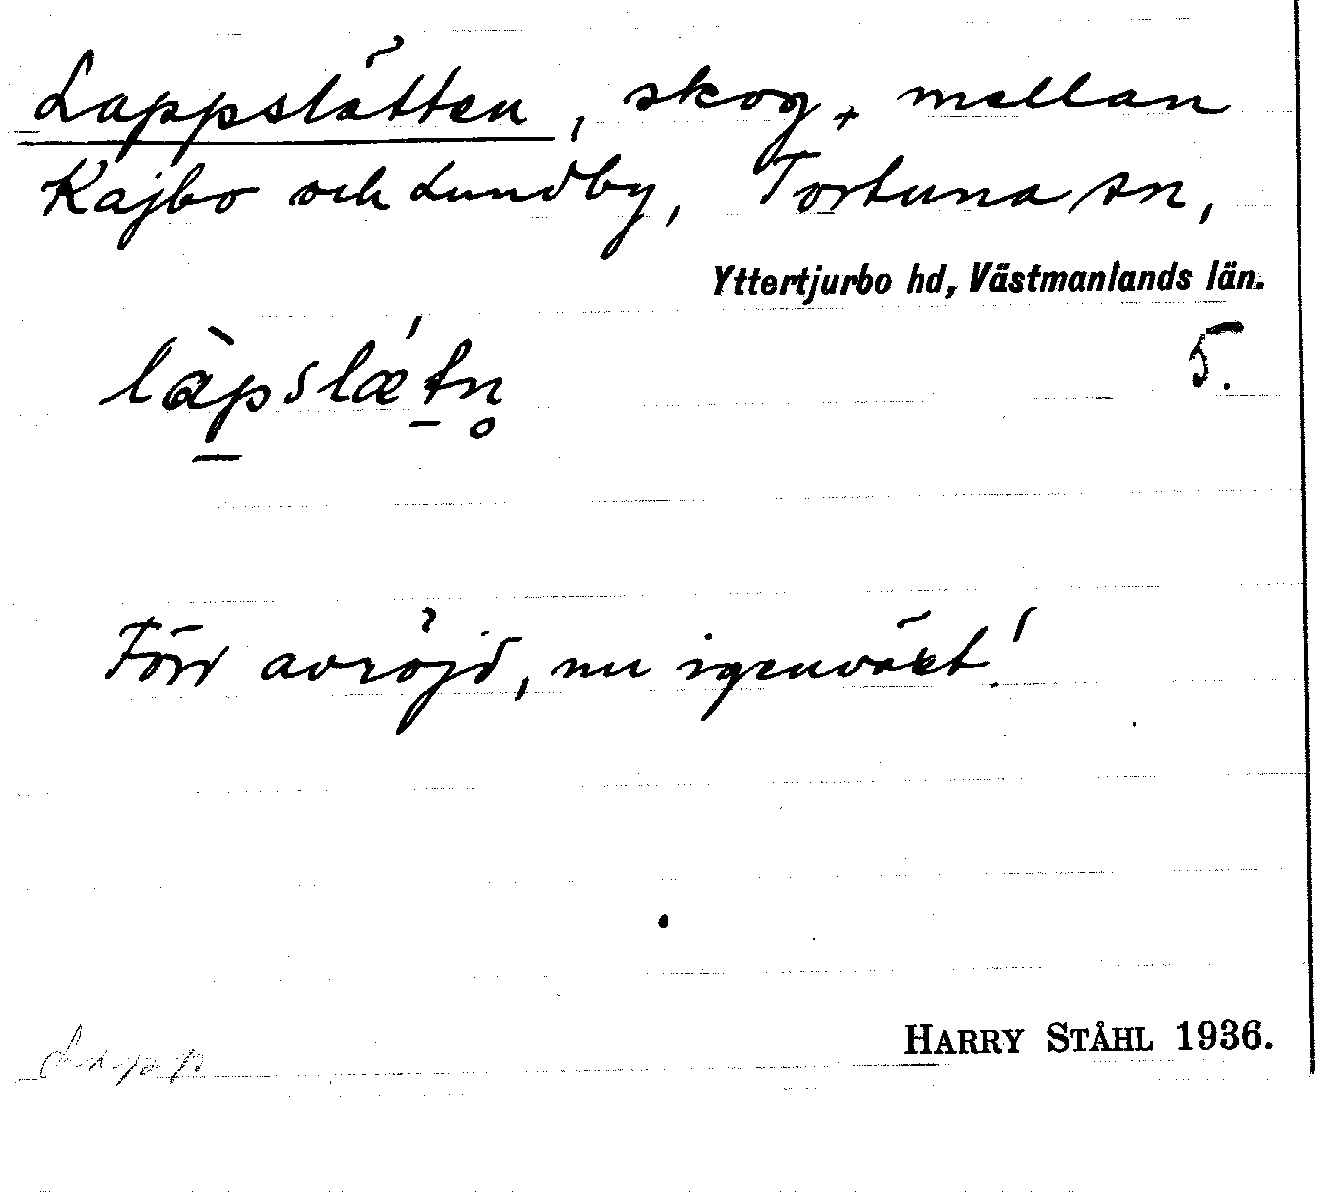 Lappslätten, skog, mellan
Kajbo och Lundby, Tortuna sn,
Yttertjurbo hd, Västmanlands län.
làp̲slæ´t̲n̥ 5.
Förr avröjd, nu igenväxt!
Lapp
HARRY STÅHL 1936.